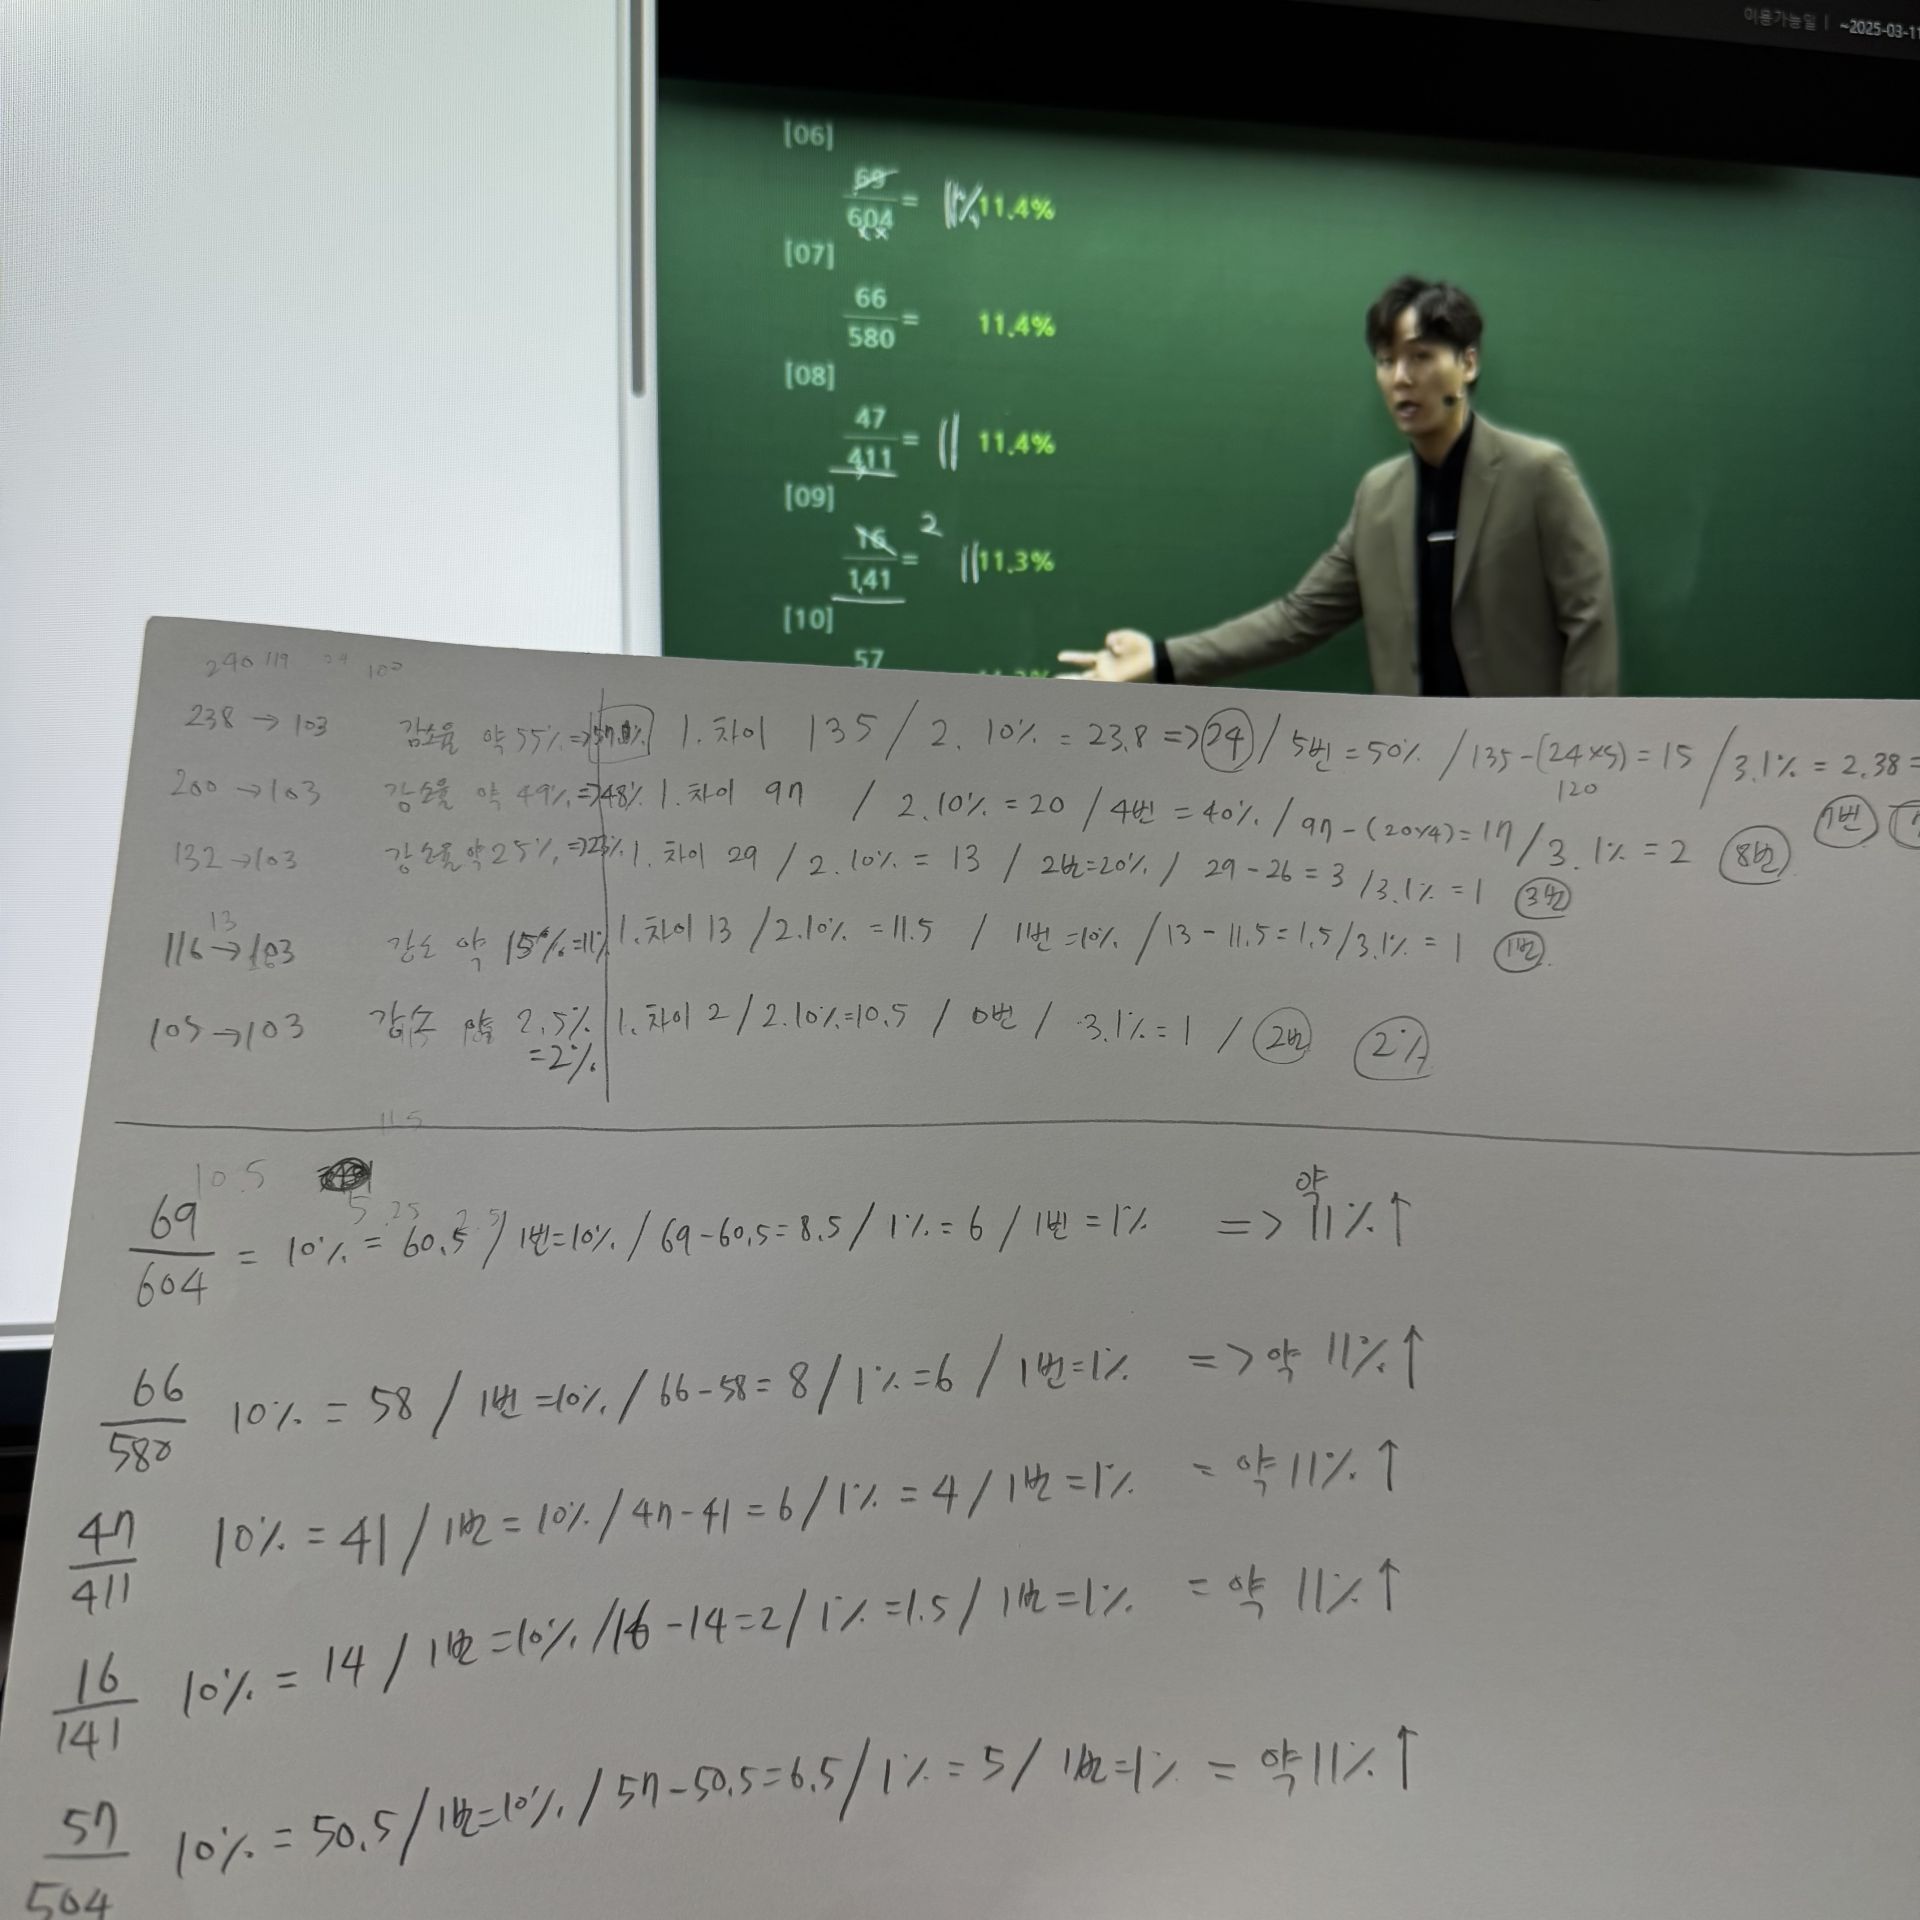 이용가능일 | ~2025-03-11
[06]
69/604 = 11% 11.4%
[07]
66/580 = 11.4%
[08]
47/411 = 11 11.4%
[09]
16/141 = 2 11 11.3%
[10]
57
240 119 100
238 → 103 감소율 약 55% => 1. 차이 135 / 2. 10% = 23.8 => 24 / 5번 = 50% / 135-(24×5) = 15 / 3.1% = 2.38 =
120
200 → 103 감소율 약 49% => 48% 1. 차이 97 / 2. 10% = 20 / 4번 = 40% / 97-(20×4) = 17 / 3. 1% = 2 8번
7번
132 → 103 감소율 약 25% => 1. 차이 29 / 2. 10% = 13 / 2번=20% / 29-26 = 3 / 3.1% = 1 3번
13
116 → 103 감소 약 15% = 11% 1. 차이 13 / 2.10% = 11.5 / 1번 = 10% / 13 - 11.5 = 1.5 / 3.1% = 1 1번
105 → 103 감소 약 2.5% 1. 차이 2 / 2.10%=10.5 / 0번 / 3.1% = 1 / 2번 2%
= 2%
11.5
10.5
5.25 2.5
69/604 = 10% = 60.5 / 1번=10% / 69-60.5 = 8.5 / 1% = 6 / 1번 = 1% => 약 11% ↑
66/580 10% = 58 / 1번 = 10% / 66-58 = 8 / 1% = 6 / 1번=1% => 약 11% ↑
47/411 10% = 41 / 1번 = 10% / 47-41 = 6 / 1% = 4 / 1번 = 1% = 약 11% ↑
16/141 10% = 14 / 1번 = 10% / 16-14=2 / 1% = 1.5 / 1번 = 1% = 약 11% ↑
57/504 10% = 50.5 / 1번=10% / 57-50.5=6.5 / 1% = 5 / 1번=1% = 약 11% ↑